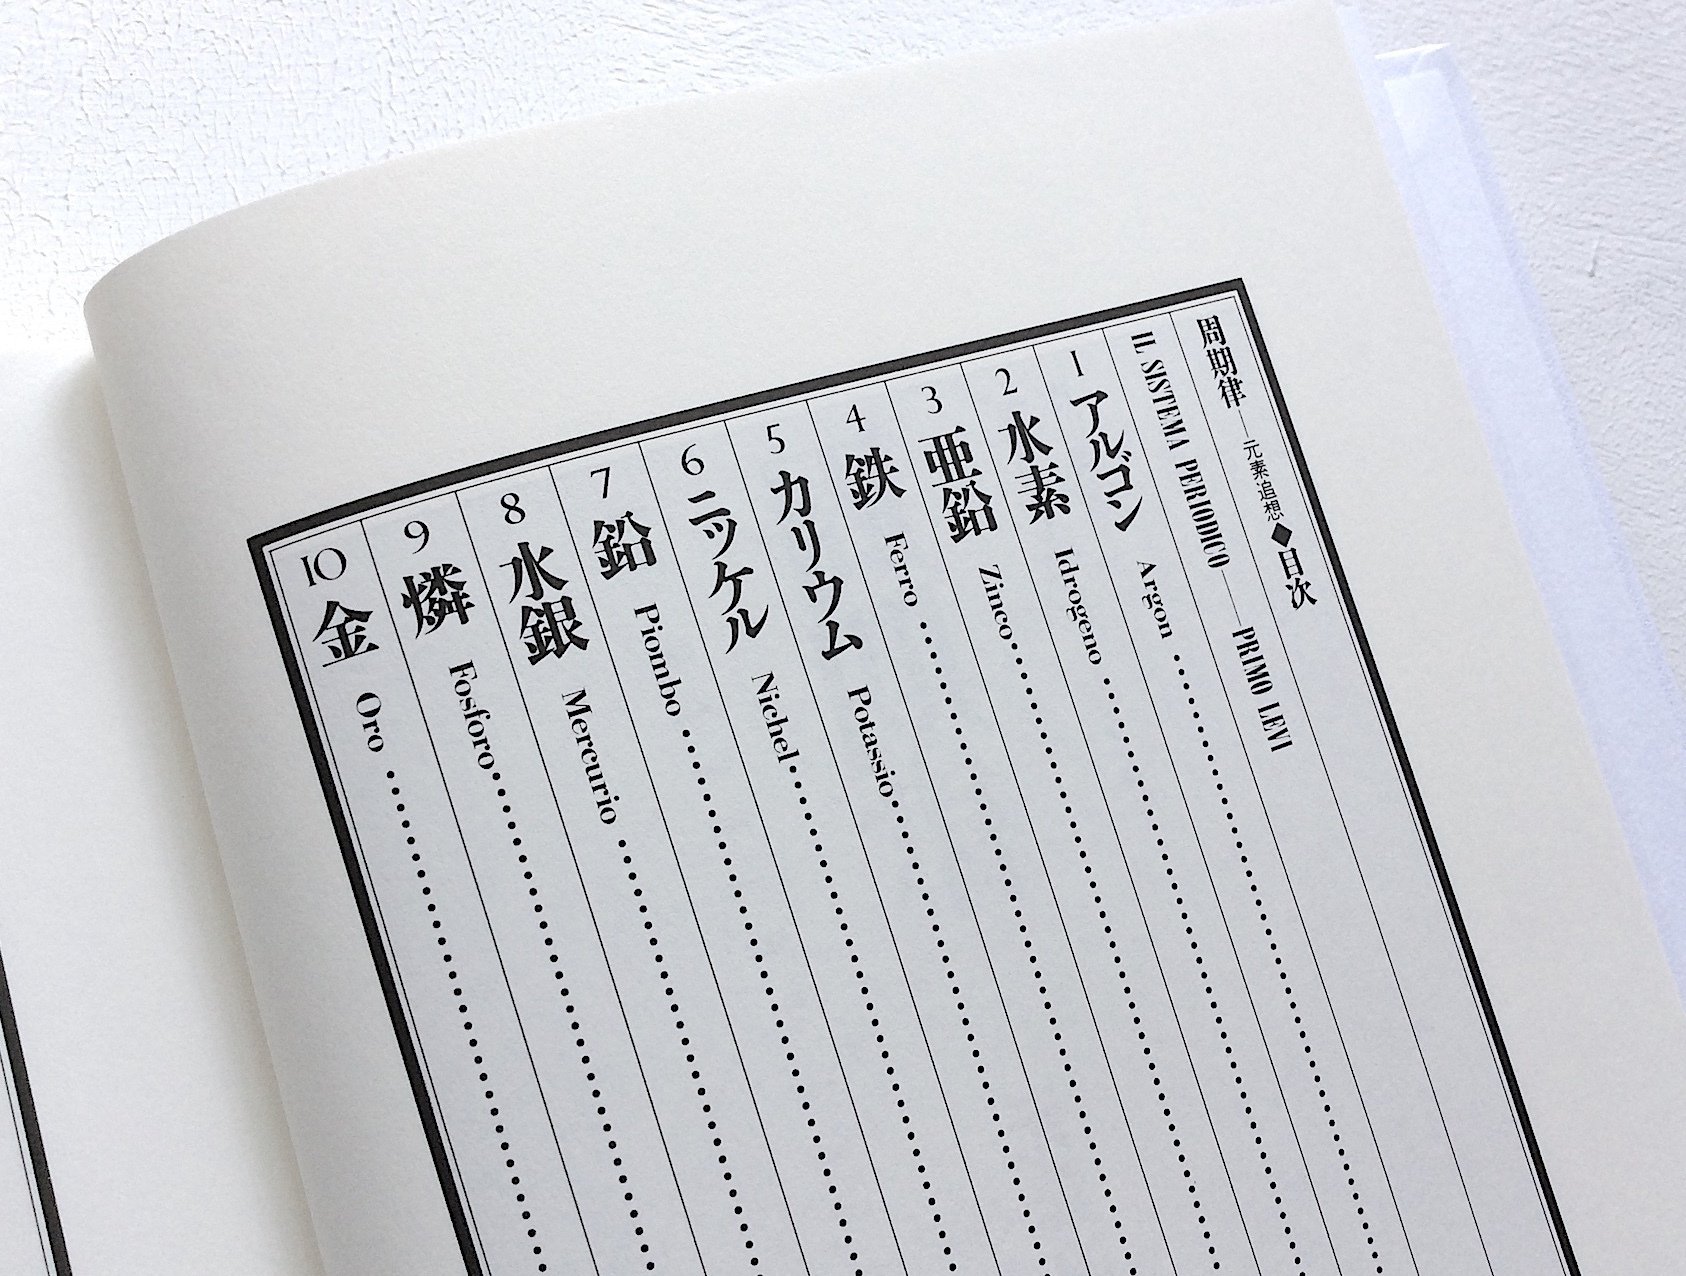 周期律―元素追想◆目次
IL SISTEMA PERIODICO―PRIMO LEVI
1 アルゴン Argon
2 水素 Idrogeno
3 亜鉛 Zinco
4 鉄 Ferro
5 カリウム Potassio
6 ニッケル Nichel
7 鉛 Piombo
8 水銀 Mercurio
9 燐 Fosforo
10 金 Oro